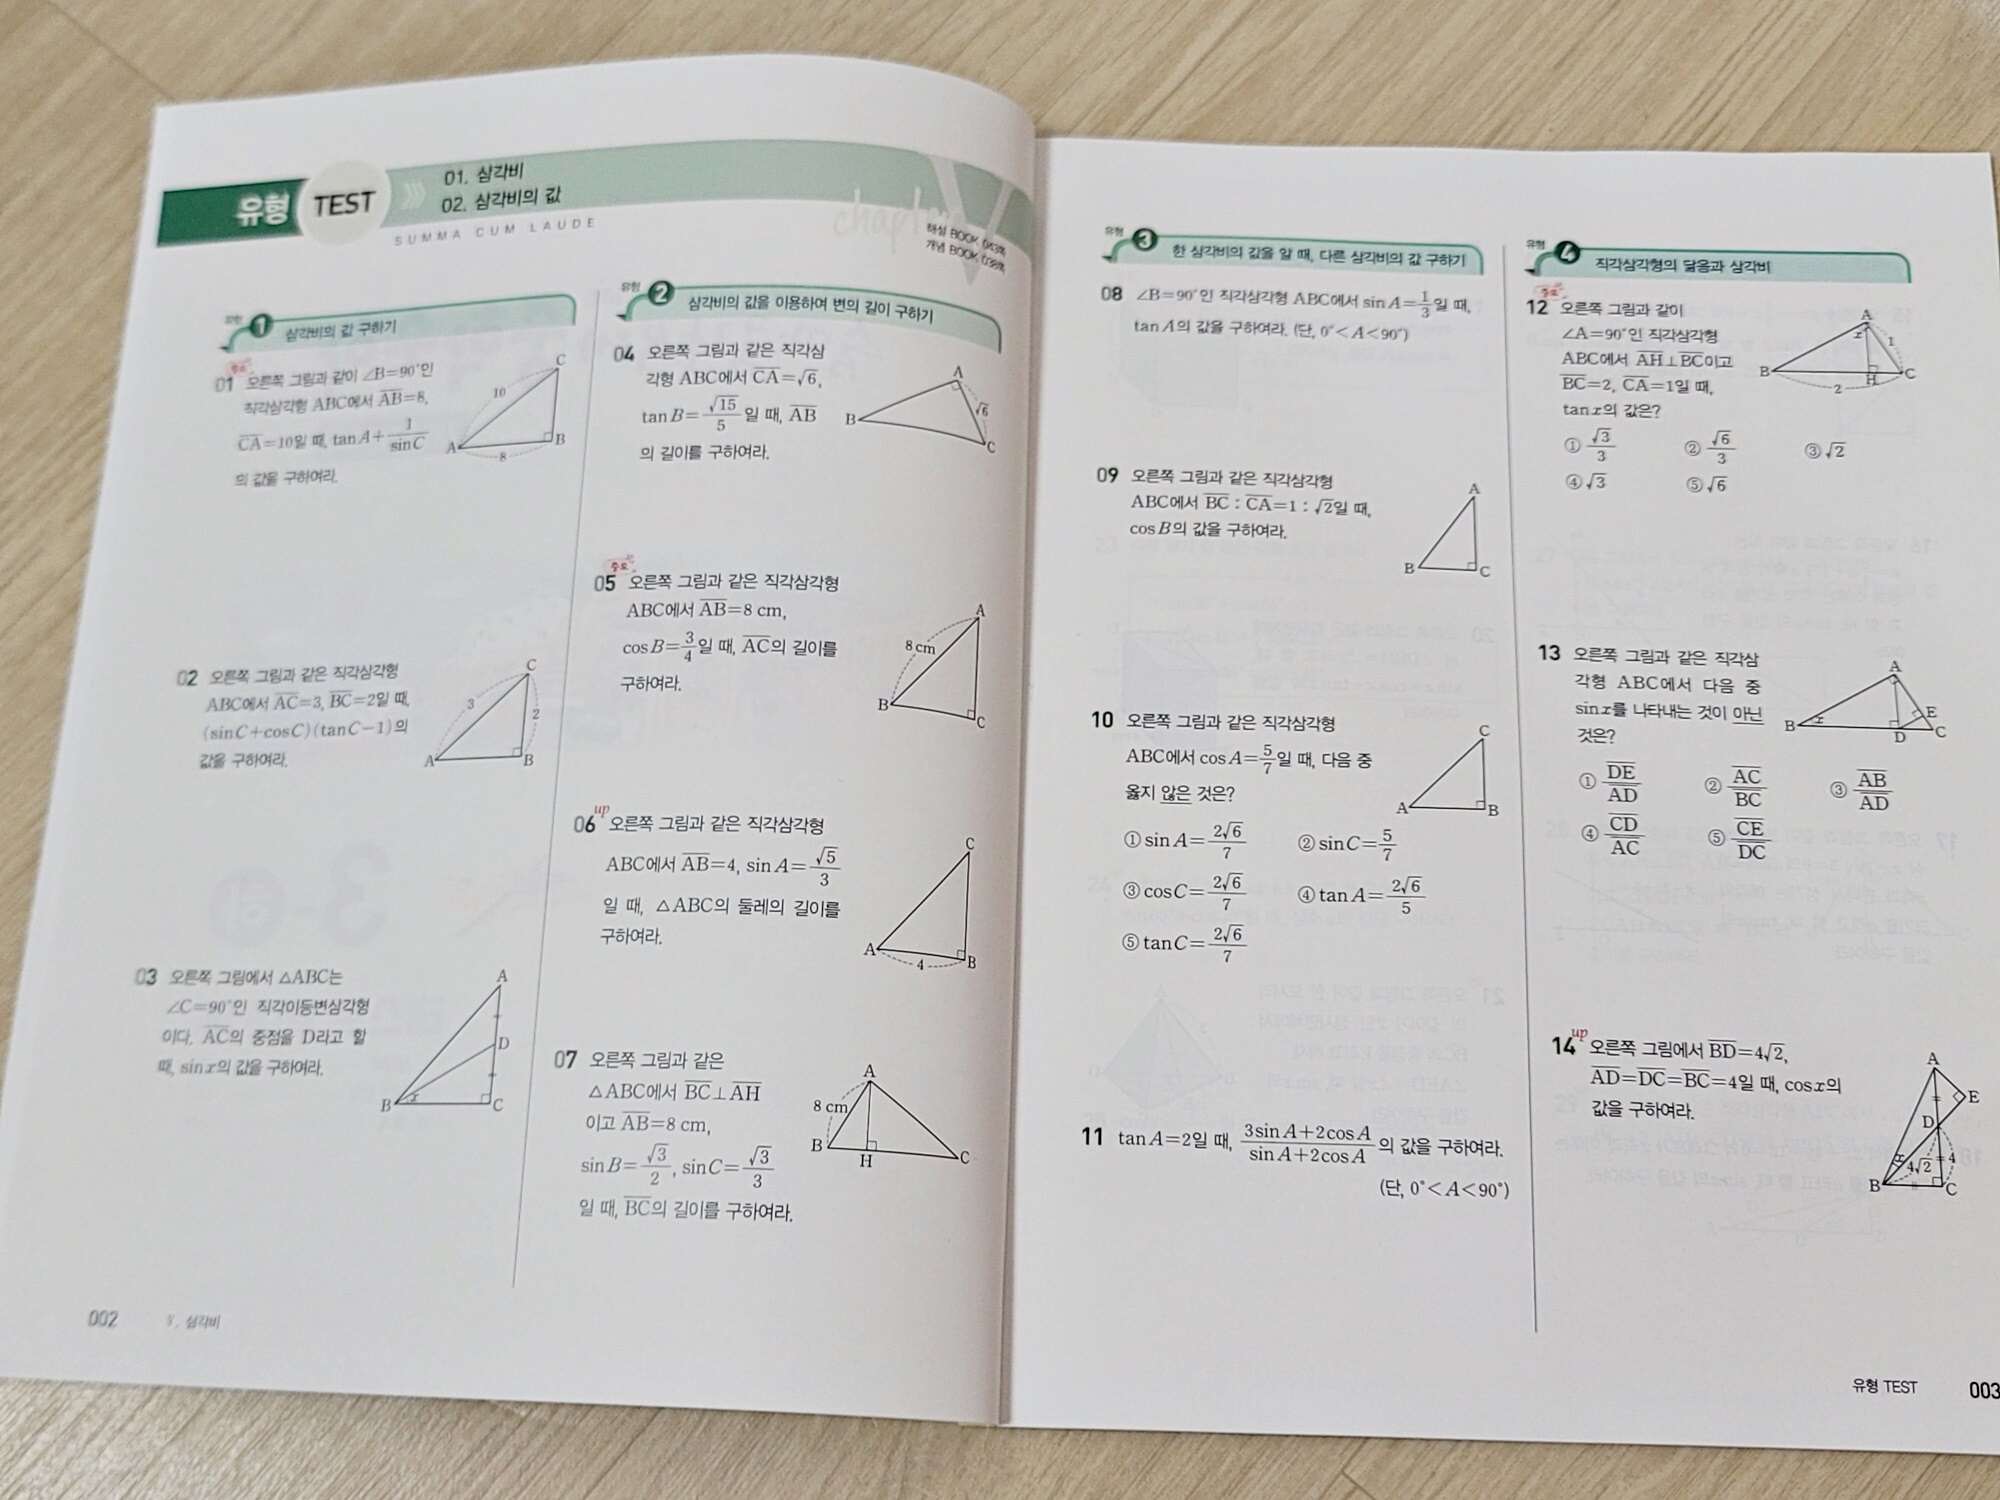 유형 TEST
01. 삼각비
02. 삼각비의 값
SUMMA CUM LAUDE
해설 BOOK 043쪽
개념 BOOK 038쪽
유형 1 삼각비의 값 구하기
중요
01 오른쪽 그림과 같이 ∠B=90°인
직각삼각형 ABC에서 AB=8,
CA=10일 때, tan A+1/sin C
의 값을 구하여라.
C
10
A
8
B
02 오른쪽 그림과 같은 직각삼각형
ABC에서 AC=3, BC=2일 때,
(sin C+cos C)(tan C-1)의
값을 구하여라.
C
3
2
A
B
03 오른쪽 그림에서 △ABC는
∠C=90°인 직각이등변삼각형
이다. AC의 중점을 D라고 할
때, sin x의 값을 구하여라.
A
D
x
B
C
002
Ⅴ. 삼각비
유형 2 삼각비의 값을 이용하여 변의 길이 구하기
04 오른쪽 그림과 같은 직각삼
각형 ABC에서 CA=√6,
tan B=√15/5일 때, AB
의 길이를 구하여라.
A
√6
B
C
중요
05 오른쪽 그림과 같은 직각삼각형
ABC에서 AB=8 cm,
cos B=3/4일 때, AC의 길이를
구하여라.
A
8 cm
B
C
up
06 오른쪽 그림과 같은 직각삼각형
ABC에서 AB=4, sin A=√5/3
일 때, △ABC의 둘레의 길이를
구하여라.
C
A
4
B
07 오른쪽 그림과 같은
△ABC에서 BC⊥AH
이고 AB=8 cm,
sin B=√3/2, sin C=√3/3
일 때, BC의 길이를 구하여라.
A
8 cm
B
H
C
유형 3 한 삼각비의 값을 알 때, 다른 삼각비의 값 구하기
08 ∠B=90°인 직각삼각형 ABC에서 sin A=1/3일 때,
tan A의 값을 구하여라. (단, 0°<A<90°)
09 오른쪽 그림과 같은 직각삼각형
ABC에서 BC : CA=1 : √2일 때,
cos B의 값을 구하여라.
A
B
C
10 오른쪽 그림과 같은 직각삼각형
ABC에서 cos A=5/7일 때, 다음 중
옳지 않은 것은?
① sin A=2√6/7 ② sin C=5/7
③ cos C=2√6/7 ④ tan A=2√6/5
⑤ tan C=2√6/7
C
A
B
11 tan A=2일 때, (3sin A+2cos A)/(sin A+2cos A)의 값을 구하여라.
(단, 0°<A<90°)
유형 4 직각삼각형의 닮음과 삼각비
중요
12 오른쪽 그림과 같이
∠A=90°인 직각삼각형
ABC에서 AH⊥BC이고
BC=2, CA=1일 때,
tan x의 값은?
① √3/3 ② √6/3 ③ √2
④ √3 ⑤ √6
A
x
1
B
H
C
2
13 오른쪽 그림과 같은 직각삼
각형 ABC에서 다음 중
sin x를 나타내는 것이 아닌
것은?
① DE/AD ② AC/BC ③ AB/AD
④ CD/AC ⑤ CE/DC
A
E
B
x
D
C
up
14 오른쪽 그림에서 BD=4√2,
AD=DC=BC=4일 때, cos x의
값을 구하여라.
A
E
D
x
4√2
4
B
C
유형 TEST
003